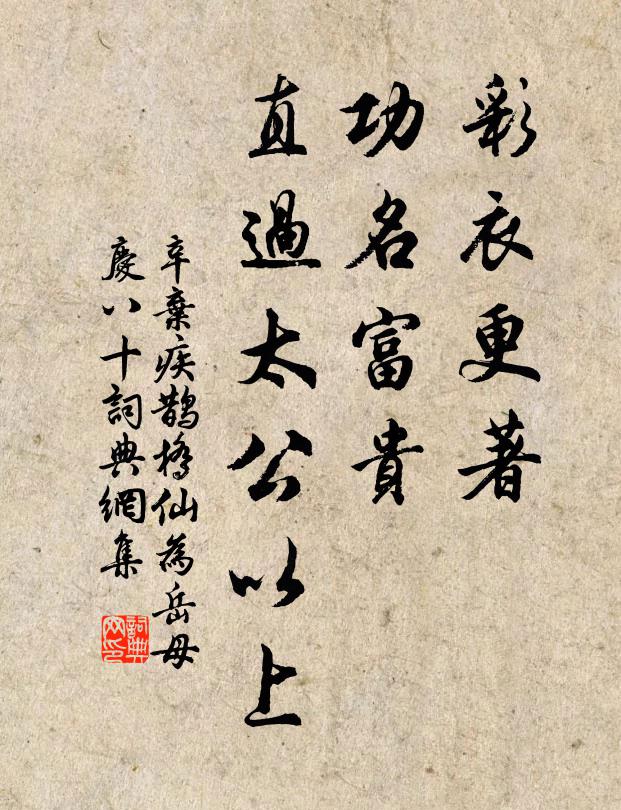 彩衣更著
功名富貴
直過太公以上
辛棄疾鵲橋仙為岳母
慶八十詞典網集
詞典
网印